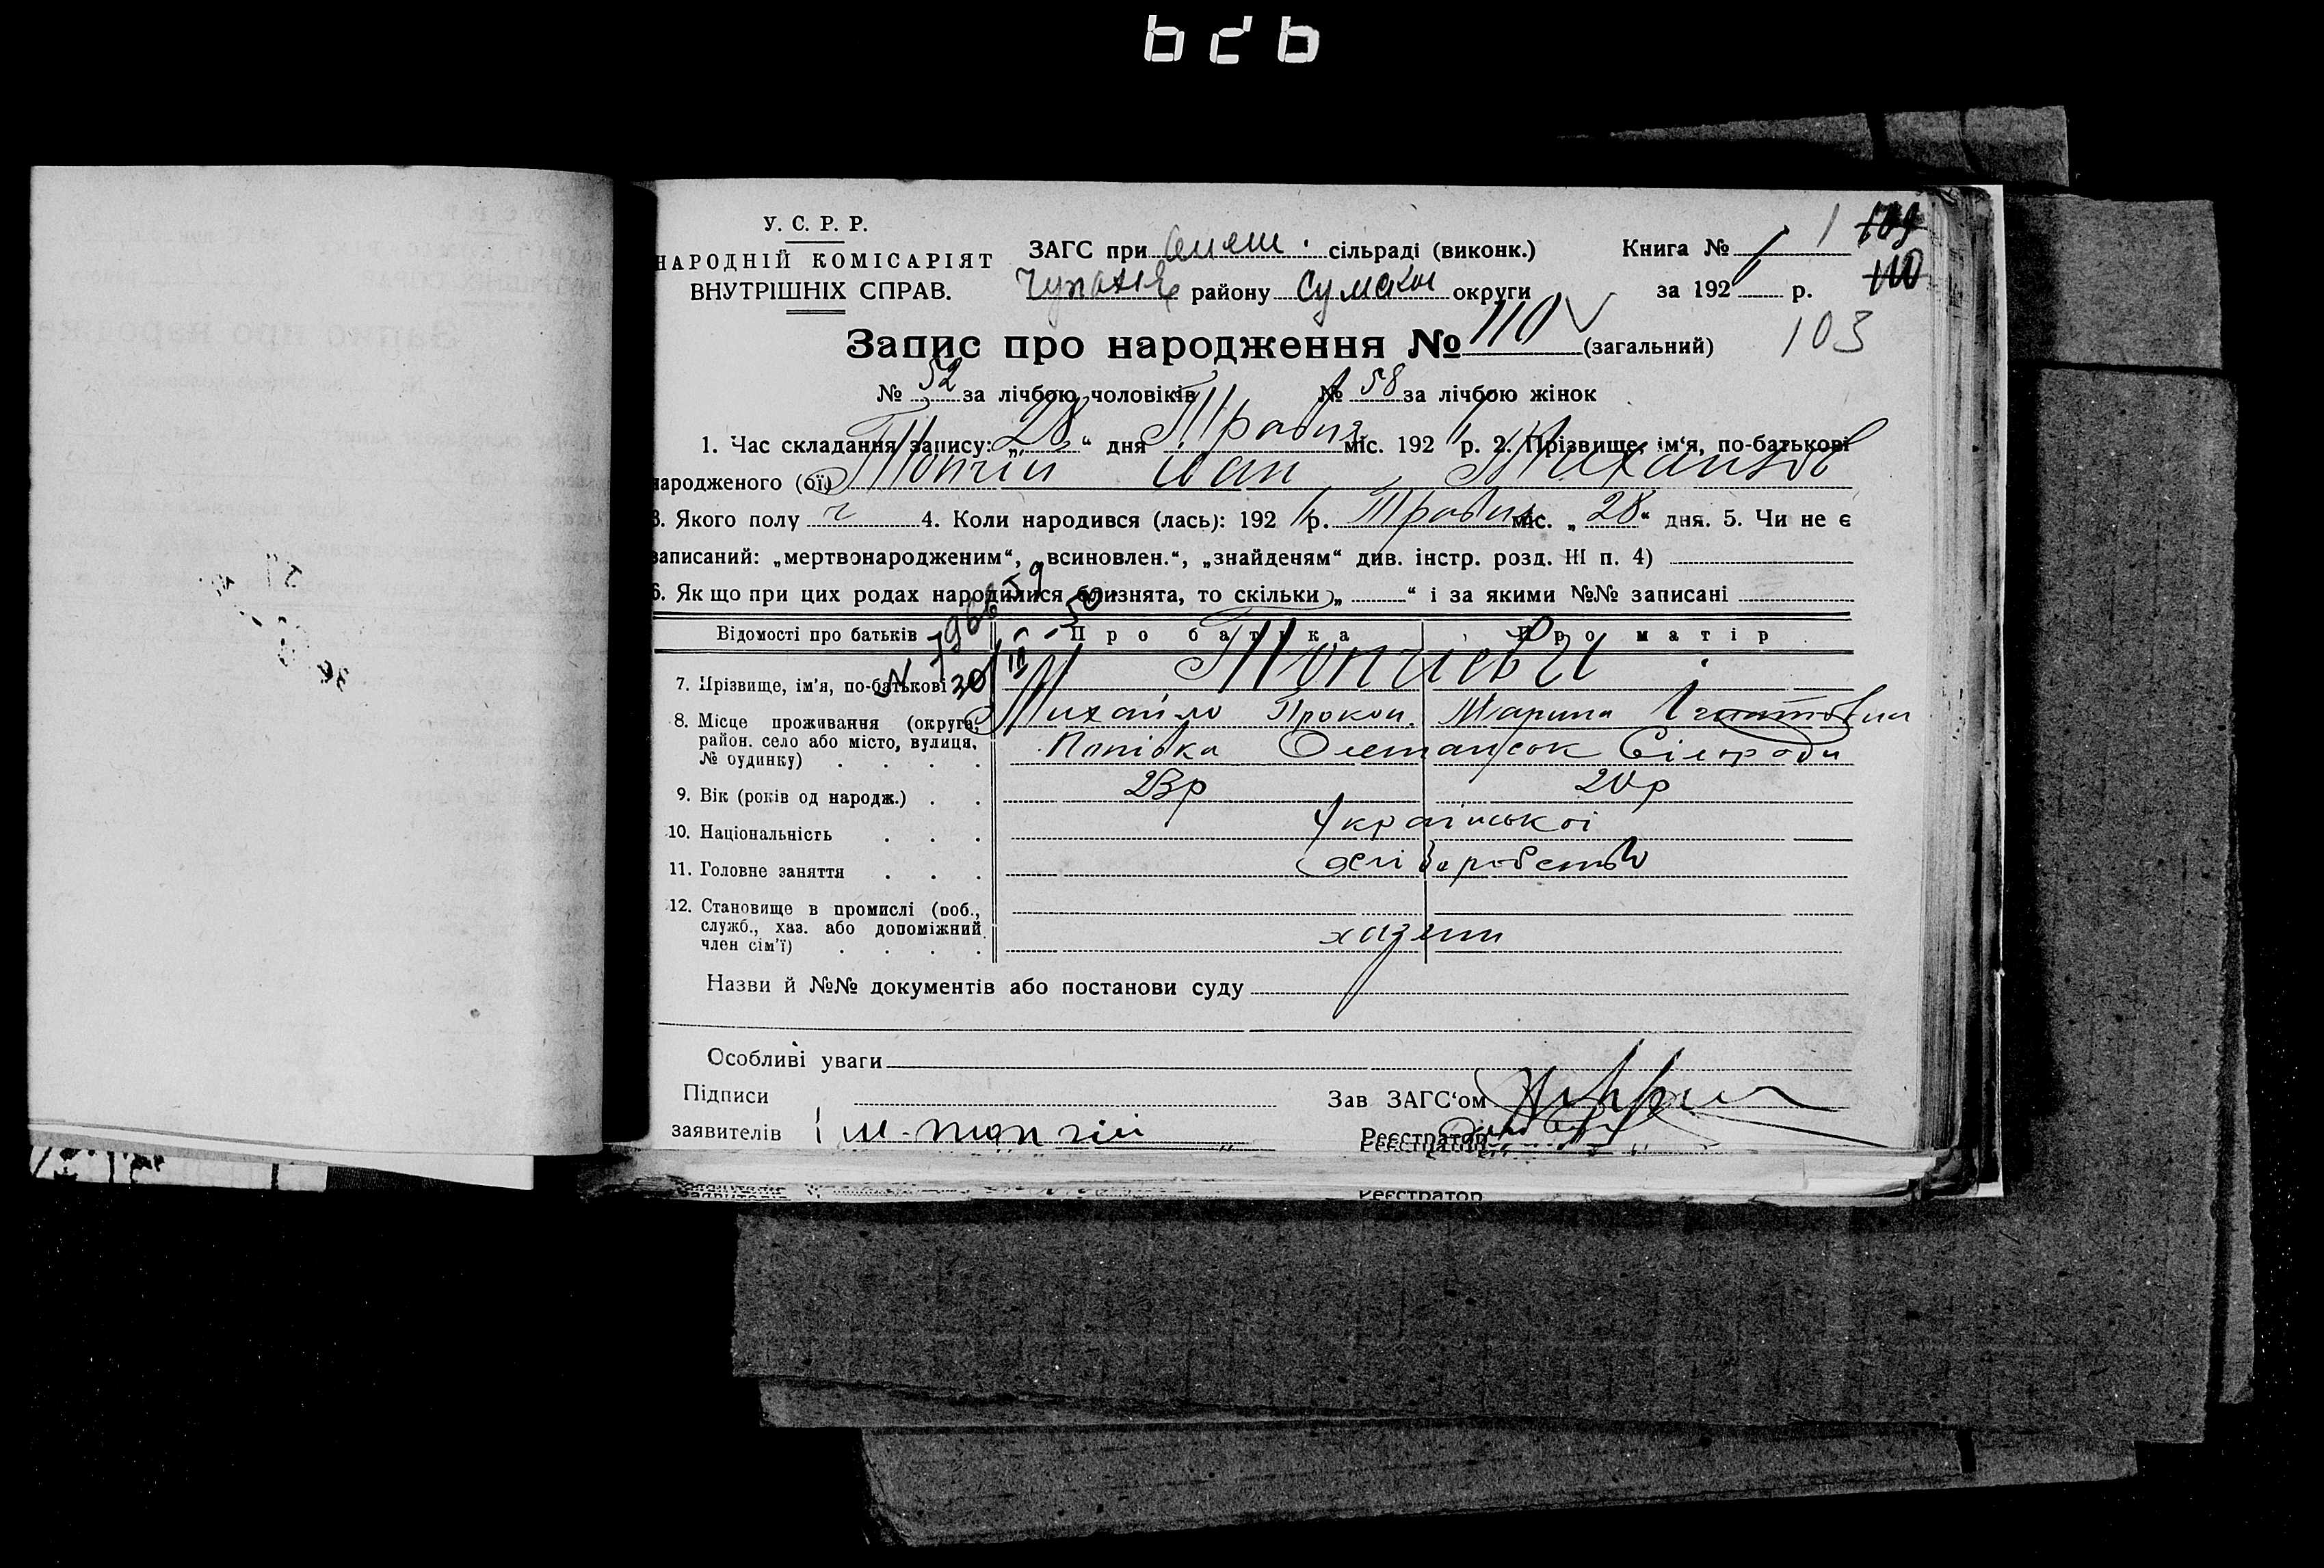 У. С. Р. Р.
НАРОДНІЙ КОМІСАРІЯТ
ВНУТРІШНІХ СПРАВ.
ЗАГС при сільраді (виконк.)
району Сумској округи
Книга № 1 1 109
за 192 р. 110
103
Запис про народження № 110 (загальний)
№ 52 за лічбою чоловіків № 58 за лічбою жінок
1. Час складання запису: „28“ дня Травня міс. 192 р. 2. Прізвище, ім‘я, по-батькові
народженого (ої) Топчій Іван Михайлов
3. Якого полу ч 4. Коли народився (лась): 192 р. Травня міс. „28“ дня. 5. Чи не є
записаний: „мертвонародженим“, „всиновлен.“, „знайденям“ див. інстр. розд. III п. 4)
6. Якщо при цих родах народилися близнята, то скільки „ “ і за якими №№ записані
Відомості про батьків Про батька Про матір
7. Прізвище, ім‘я, по-батькові Топчієви
Михайло Прокоп. Марина Ігнатовна
8. Місце проживання (округа, район, село або місто, вулиця, № будинку) Попівка Сілоради
9. Вік (років од народж.) 23р 20р
10. Національність Української
11. Головне заняття хліборобство
12. Становище в промислі (роб., служб., хаз. або допоміжний член сім‘ї) хазяин
Назви й №№ документів або постанови суду
Особливі уваги
Підписи
заявителів М. Топчій
Зав ЗАГС‘ом
Реєстратор
Реєстратор